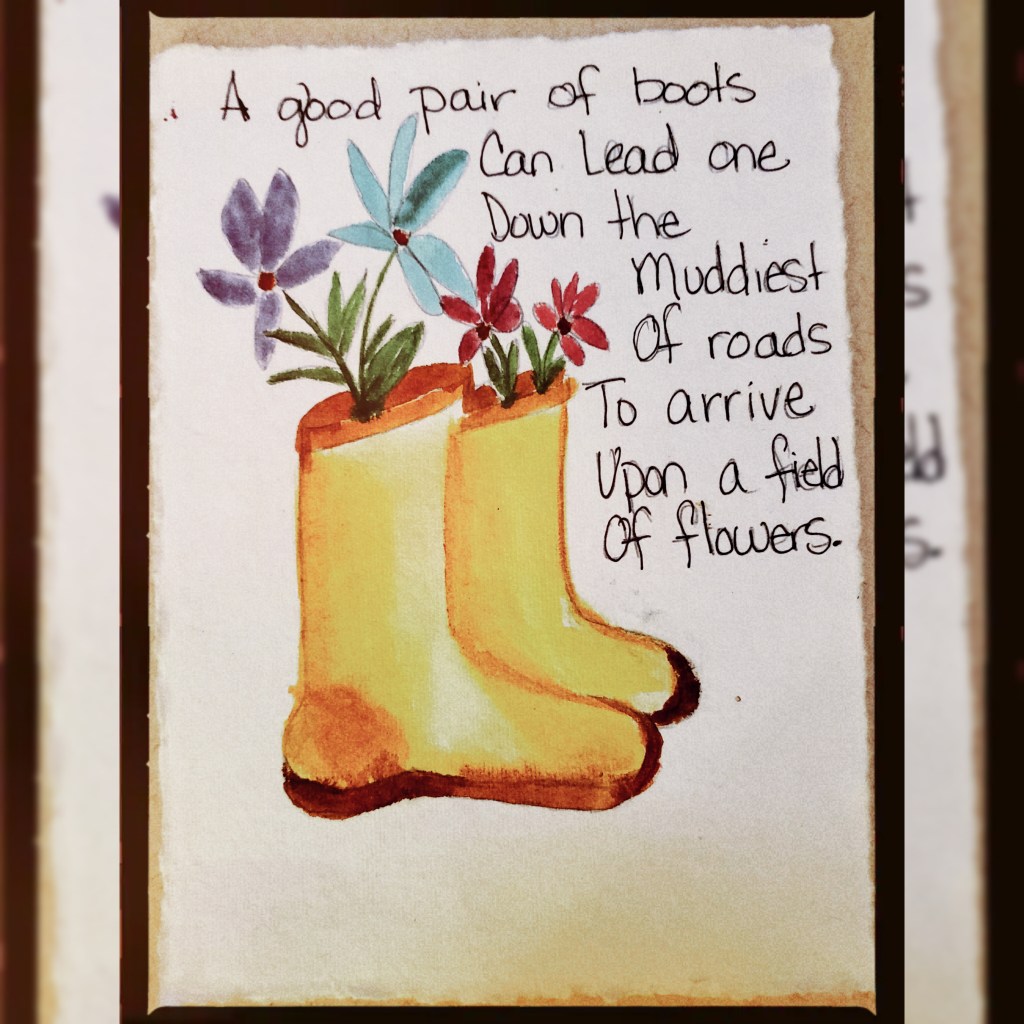 A good pair of boots
Can Lead one
Down the
Muddiest
Of roads
To arrive
Upon a field
Of flowers.